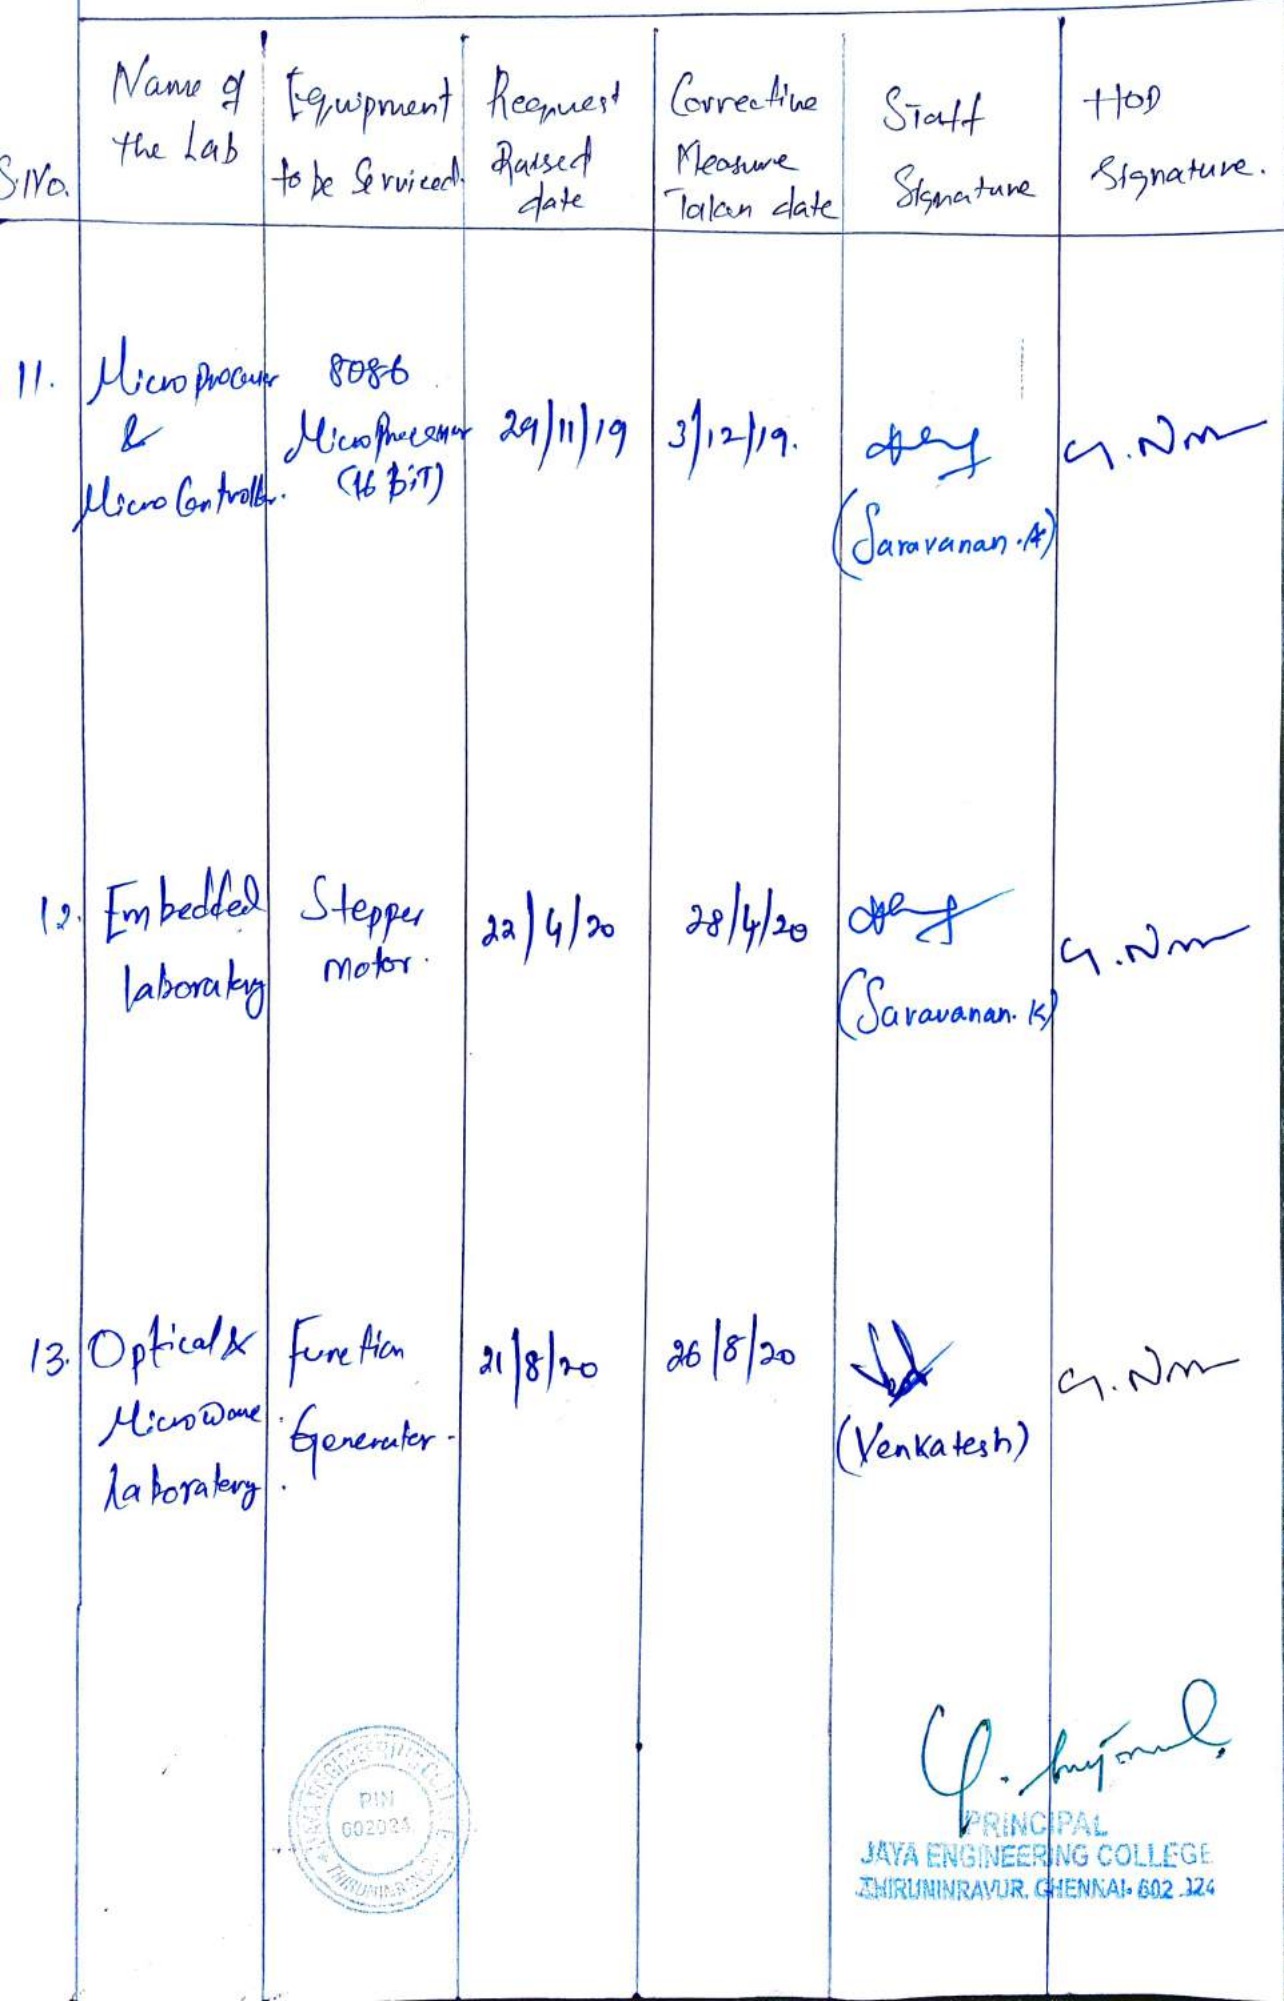 S.No.
Name of
the Lab
Equipment
to be Serviced.
Request
Raised
date
Corrective
Measure
Taken date
Staff
Signature
HOD
Signature.
11.
Microprocessor
&
Micro Controller.
8086
Microprocessor
(16 BiT)
29/11/19
3/12/19.
(Saravanan.A)
12.
Embedded
laboratory
Stepper
motor.
22/4/20
28/4/20
(Saravanan.K)
13.
Optical &
Microwave
laboratory.
Function
Generator.
21/8/20
26/8/20
(Venkatesh)
JAYA ENGINEERING COLLEGE
PIN
602024
PRINCIPAL
JAYA ENGINEERING COLLEGE
THIRUNINRAVUR, CHENNAI-602 024